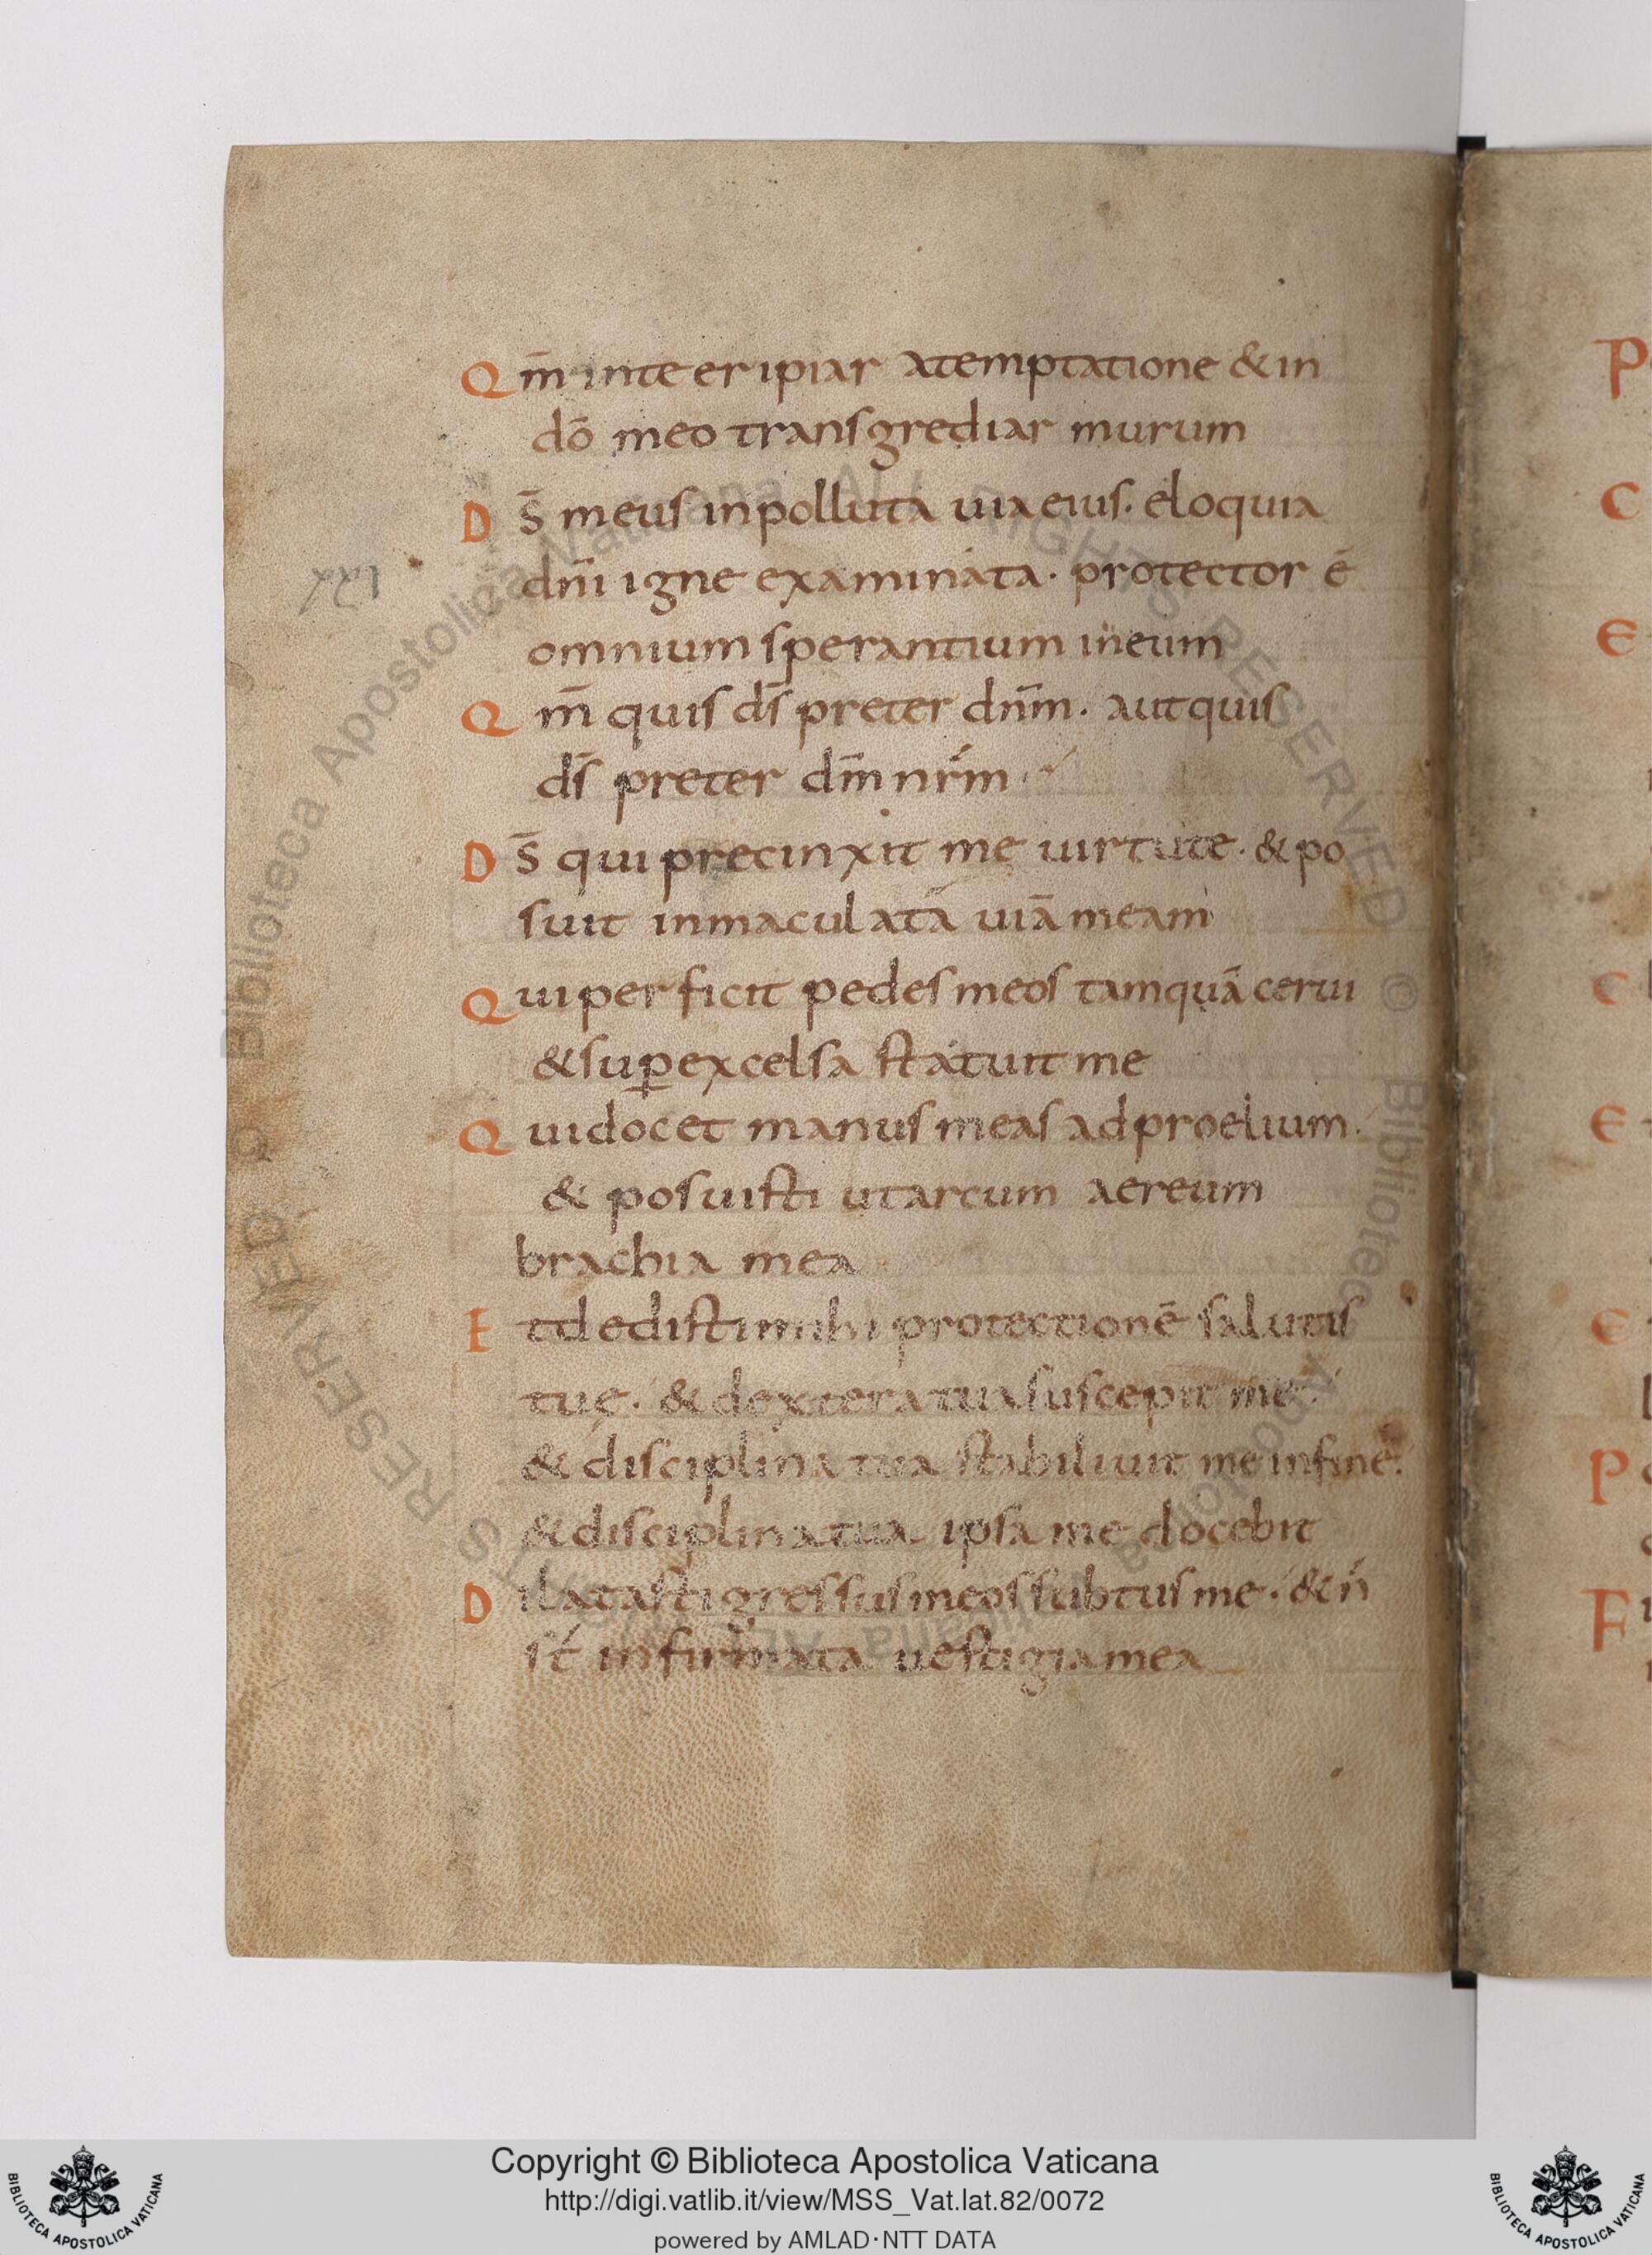 Qm̄ inte eripiar atemptatione & in
dō meo transgrediar murum
DS̄ meus inpolluta uia eius. eloquia
dn̄i igne examinata. protector ē
omnium sperantium ineum
Qm̄ quis ds̄ preter dn̄m. aut quis
ds̄ preter dm̄ nr̄m
DS̄ qui precinxit me uirtute. & po
suit inmaculatā uiā meam
Qui perficit pedes meos tamquā cerui
& sup̱ excelsa statuit me
Qui docet manus meas ad proelium.
& posuisti ut arcum aereum
brachia mea
Et dedisti mihi protectionē salutis
tuę. & dextera tua suscepit me
& disciplina tua stabiliuit me infinē.
& disciplina tua ipsa me docebit
Dilatasti gressus meos subtus me. & ń
st́ infirmata uestigia mea
xxi
P
C
E
C
E
E
P
F
Copyright © Biblioteca Apostolica Vaticana
http://digi.vatlib.it/view/MSS_Vat.lat.82/0072
powered by AMLAD·NTT DATA
BIBLIOTECA APOSTOLICA VATICANA
BIBLIOTECA APOSTOLICA VATICANA